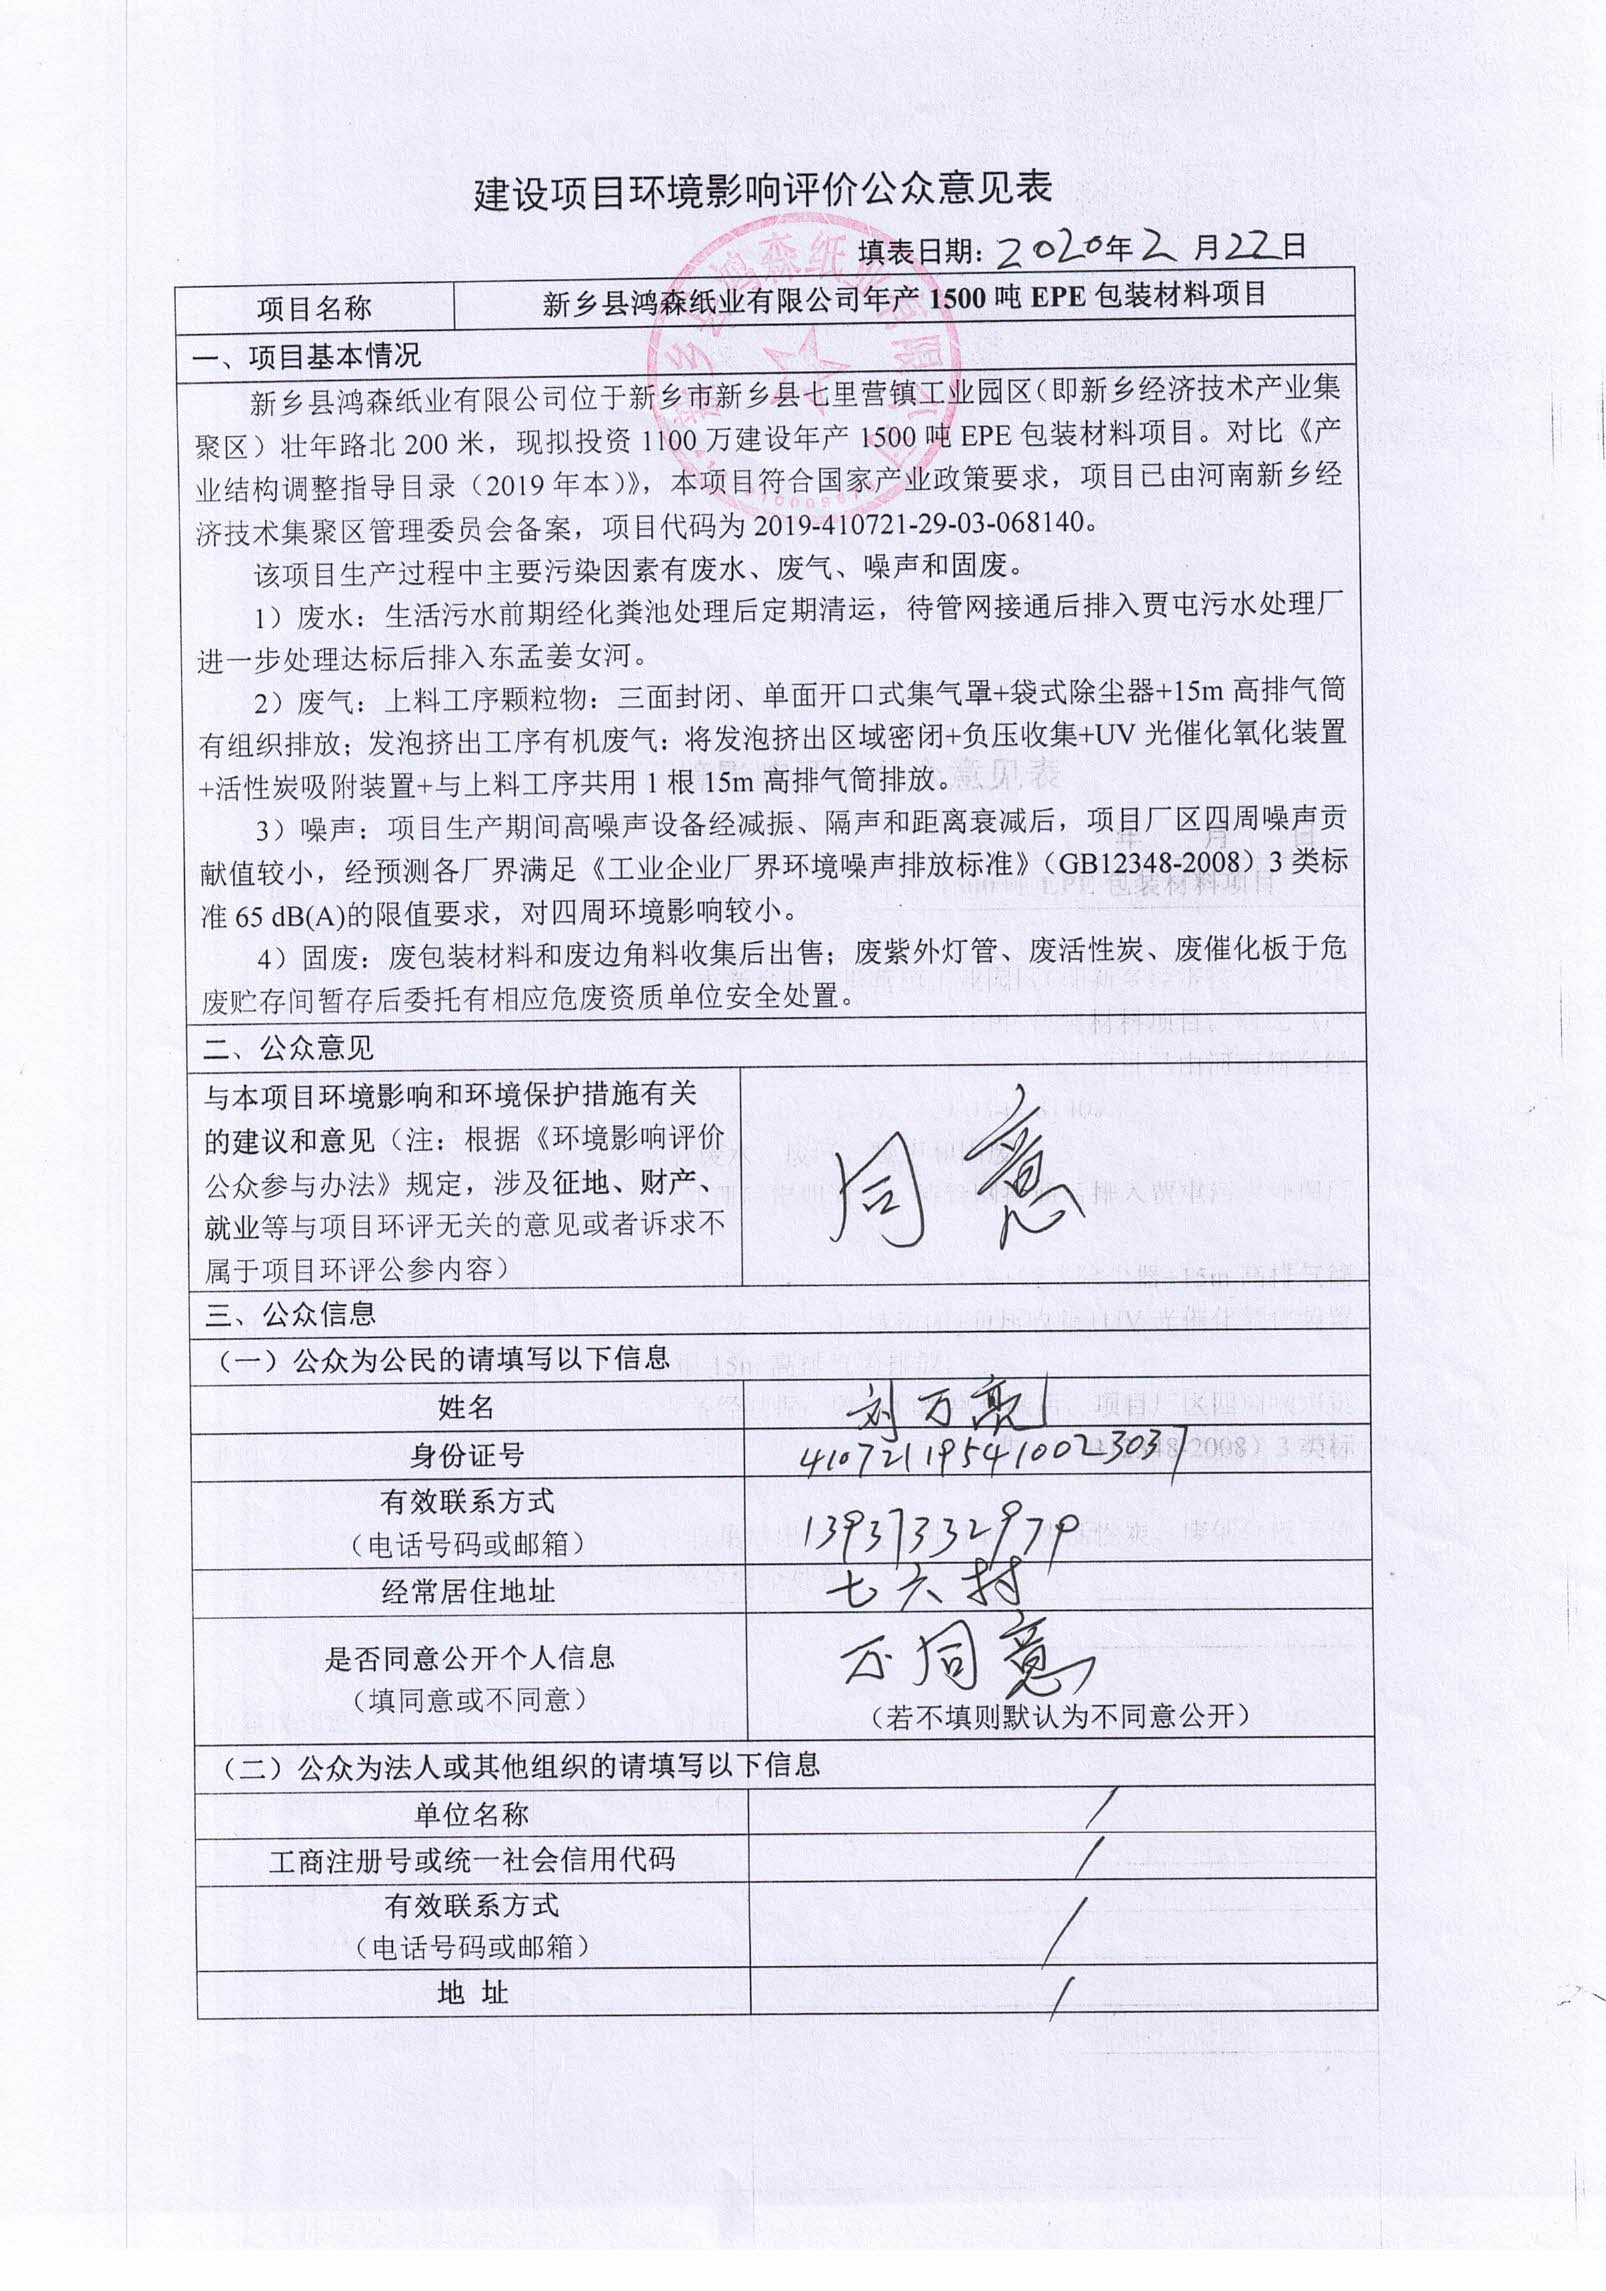 建设项目环境影响评价公众意见表
填表日期：2020年2月22日
项目名称 新乡县鸿森纸业有限公司年产1500吨EPE包装材料项目
一、项目基本情况
新乡县鸿森纸业有限公司位于新乡市新乡县七里营镇工业园区（即新乡经济技术产业集
聚区）壮年路北200米，现拟投资1100万建设年产1500吨EPE包装材料项目。对比《产
业结构调整指导目录（2019年本）》，本项目符合国家产业政策要求，项目已由河南新乡经
济技术集聚区管理委员会备案，项目代码为2019-410721-29-03-068140。
该项目生产过程中主要污染因素有废水、废气、噪声和固废。
1）废水：生活污水前期经化粪池处理后定期清运，待管网接通后排入贾屯污水处理厂
进一步处理达标后排入东孟姜女河。
2）废气：上料工序颗粒物：三面封闭、单面开口式集气罩+袋式除尘器+15m高排气筒
有组织排放；发泡挤出工序有机废气：将发泡挤出区域密闭+负压收集+UV光催化氧化装置
+活性炭吸附装置+与上料工序共用1根15m高排气筒排放。
3）噪声：项目生产期间高噪声设备经减振、隔声和距离衰减后，项目厂区四周噪声贡
献值较小，经预测各厂界满足《工业企业厂界环境噪声排放标准》（GB12348-2008）3类标
准65 dB(A)的限值要求，对四周环境影响较小。
4）固废：废包装材料和废边角料收集后出售；废紫外灯管、废活性炭、废催化板于危
废贮存间暂存后委托有相应危废资质单位安全处置。
二、公众意见
与本项目环境影响和环境保护措施有关
的建议和意见（注：根据《环境影响评价
公众参与办法》规定，涉及征地、财产、
就业等与项目环评无关的意见或者诉求不
属于项目环评公参内容）
同意
三、公众信息
（一）公众为公民的请填写以下信息
姓名 刘万亮
身份证号 410721195410023037
有效联系方式
（电话号码或邮箱）
13937332979
经常居住地址 七六村
是否同意公开个人信息
（填同意或不同意）
不同意
（若不填则默认为不同意公开）
（二）公众为法人或其他组织的请填写以下信息
单位名称 /
工商注册号或统一社会信用代码 /
有效联系方式
（电话号码或邮箱）
/
地 址 /
新乡县鸿森纸业有限公司